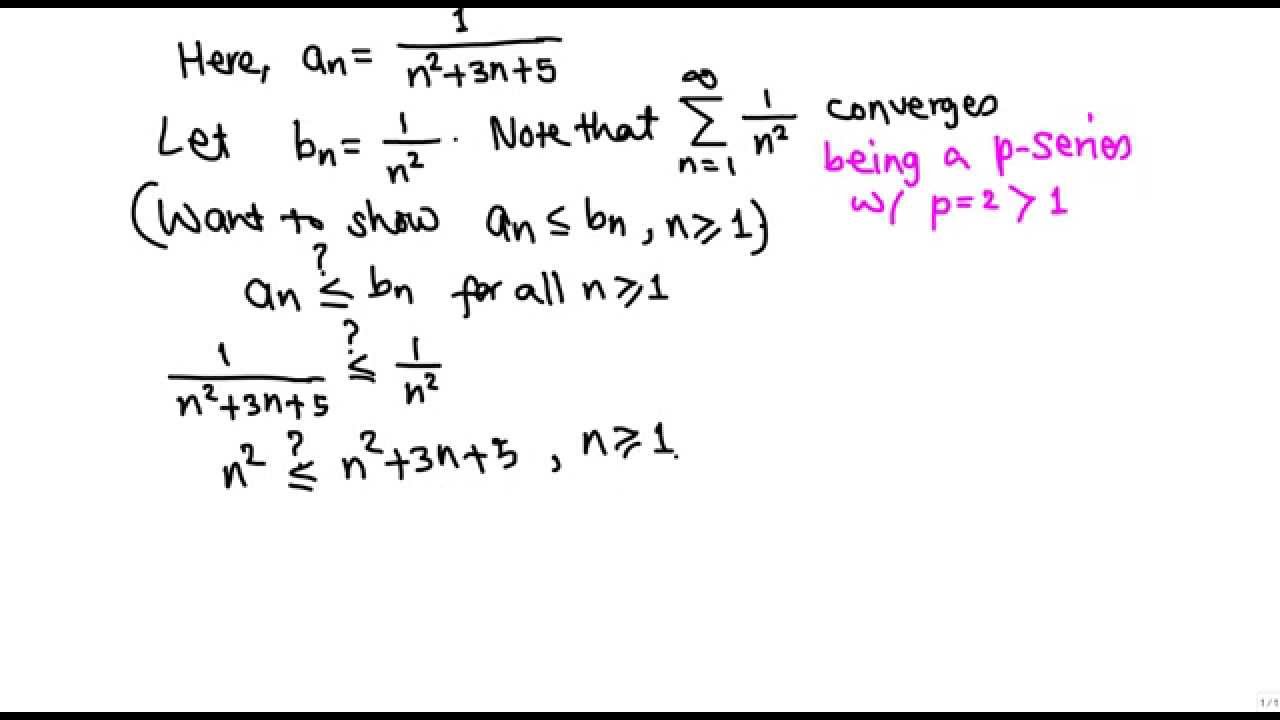 Here, aₙ = 1/(n²+3n+5)
Let bₙ = 1/n². Note that ∑_{n=1}^{∞} 1/n² converges
being a p-series
w/ p=2 > 1
(Want to show aₙ ≤ bₙ, n ≥ 1)
aₙ ≤? bₙ for all n ≥ 1
1/(n²+3n+5) ≤? 1/n²
n² ≤? n²+3n+5, n ≥ 1.
1/1